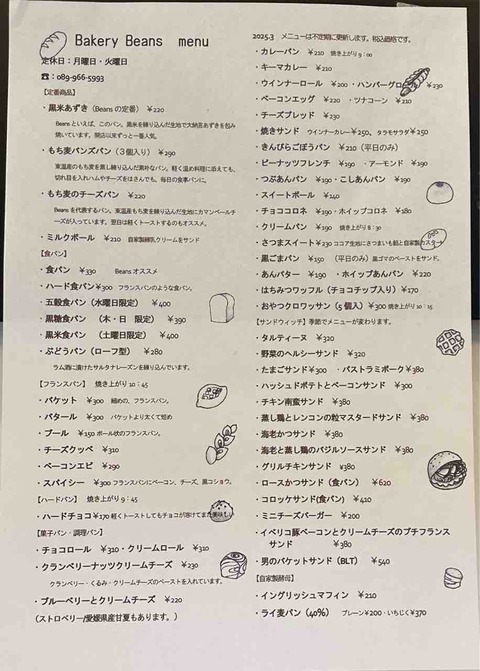 Bakery Beans menu
定休日：月曜日・火曜日
☎：089-966-5993
【定番商品】
・黒米あずき（Beansの定番） ￥220
Beansといえば、このパン。黒米を練り込んだ生地で大納言あずきを包み
焼いています。開店以来ずっと一番人気。
・もち麦パンズパン（３個入り） ￥290
東温産のもち麦を蒸し練り込んだ素朴なパン。軽く温め料理に添えても、
切れ目を入れハムやチーズをはさんでも、毎日の食事パンに。
・もち麦のチーズパン ￥220
Beansを代表するパン。東温産もち麦を練り込んだ生地にカマンベールチ
ーズが入っています。翌日は軽くトーストするのもオススメ。
・ミルクボール ￥210 自家製練乳クリームをサンド
【食パン】
・食パン ￥330 Beansオススメ
・ハード食パン￥300 フランスパンのような食パン。
・五穀食パン（水曜日限定） ￥400
・黒糖食パン （木・日 限定） ￥390
・黒米食パン （土曜日限定） ￥400
・ぶどうパン（ローフ型） ￥280
ラム酒に漬けたサルタナレーズンを練り込んでいます。
【フランスパン】 焼き上がり10：45
・バケット ￥300 細めの、フランスパン。
・バタール ￥300 バケットより太くて短め
・ブール ￥150 ボール状のフランスパン。
・チーズクッペ ￥310
・ベーコンエピ ￥290
・スパイシー ￥300 フランスパンにベーコン、チーズ、黒コショウ。
【ハードパン】 焼き上がり9：45
・ハードチョコ￥170 軽くトーストしてもチョコが溶けてまた美味しい
【菓子パン・調理パン】
・チョコロール ￥310・クリームロール ￥310
・クランベリーナッツクリームチーズ ￥230
クランベリー・くるみ・クリームチーズのペーストを入れています。
・ブルーベリーとクリームチーズ ￥220
（ストロベリー/愛媛県産甘夏もあります。）
2025.3 メニューは不定期に更新します。税込価格です。
・カレーパン ￥210 焼き上がり9：00
・キーマカレー ￥210
・ウインナーロール ￥200 ・ハンバーグロ ￥230
・ベーコンエッグ ￥220 ・ツナコーン ￥210
・チーズブレッド ￥230
・焼きサンド ウインナーカレー￥250、タラモサラダ￥250
・きんぴらごぼうパン ￥210（平日のみ）
・ピーナッツフレンチ ￥190 ・アーモンド ￥190
・つぶあんパン ￥190・こしあんパン ￥190
・スイートポール ￥140
・チョココロネ ￥190・ホイップコロネ ￥180
・クリームパン ￥190 焼き上がり8：30
・さつまスイート￥230 ココア生地にさつまいも餡と自家製カスタード
・黒ごまパン ￥150 （平日のみ）黒ゴマのペーストをサンド。
・あんバター ￥190 ・ホイップあんパン ￥220
・はちみつワッフル（チョコチップ入り）￥170
・おやつクロワッサン（5個入）￥300 焼き上がり10：15
【サンドウィッチ】季節でメニューが変わります。
・タルティーヌ ￥320
・野菜のヘルシーサンド ￥320
・たまごサンド￥300 ・パストラミポーク￥380
・ハッシュドポテトとベーコンサンド ￥300
・チキン南蛮サンド ￥380
・蒸し鶏とレンコンの粒マスタードサンド ￥380
・海老かつサンド ￥380
・海老と蒸し鶏のバジルソースサンド ￥380
・グリルチキンサンド ￥380
・ロースかつサンド（食パン） ￥620
・コロッケサンド(食パン) ￥410
・ミニチーズバーガー ￥200
・イベリコ豚ベーコンとクリームチーズのプチフランス
サンド ￥380
・男のバケットサンド（BLT） ￥540
【自家製酵母】
・イングリッシュマフィン ￥210
・ライ麦パン（40％） プレーン￥200・いちじく￥370